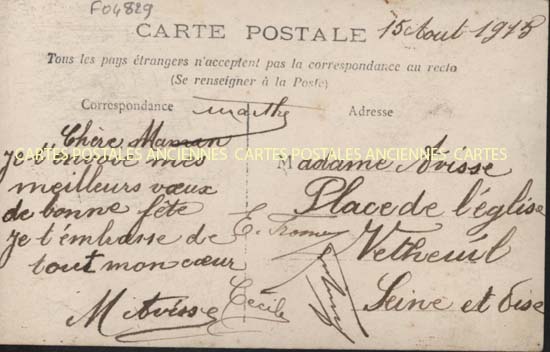 F04829
CARTE POSTALE
15 Aout 1915
Tous les pays étrangers n'acceptent pas la correspondance au recto
(Se renseigner à la Poste)
Correspondance
Marthe
Adresse
Chère Maman
CARTES POSTALES ANCIENNES CARTES POSTALES ANCIENNES CARTES
Je t'envoie mes
meilleurs vœux
de bonne fête
Je t'embrasse de
tout mon cœur
M Avisse
E.
Cecile
Madame Avisse
Place de l'église
Vetheuil
Seine et Oise